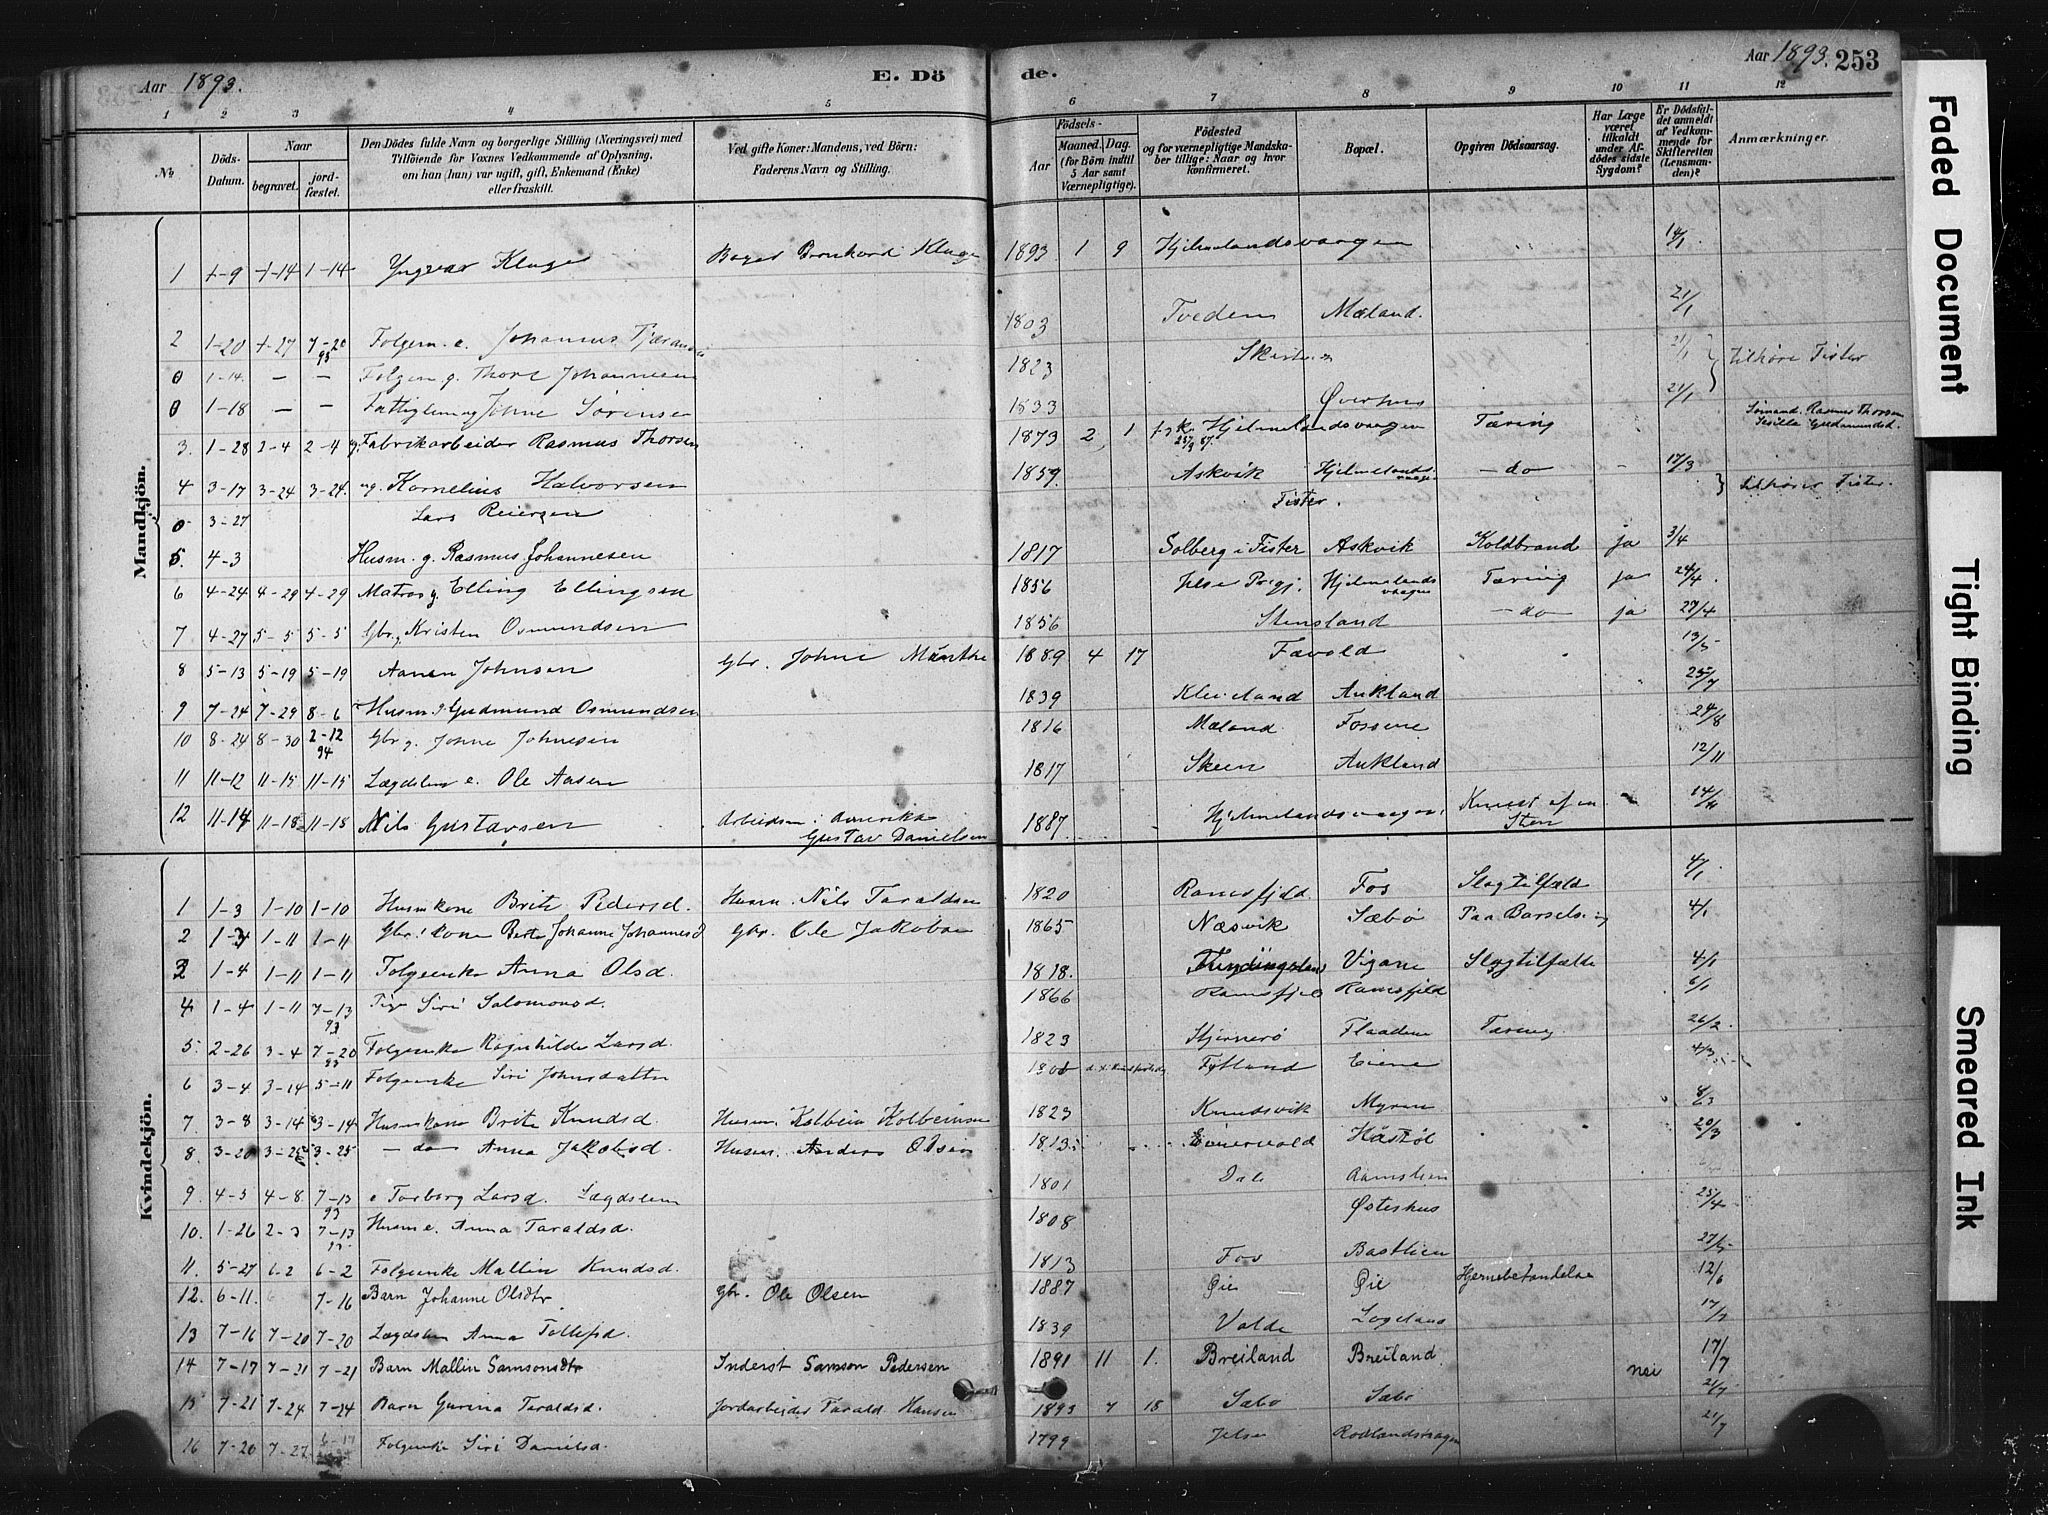 Aar 1893.
E. Dö
de.
Aar 1893. 253
1 2 3 4 5 6 7 8 9 10 11 12
№
Döds-Datum.
Naar
begravet.
jord-fæstet.
Den Dödes fulde Navn og borgerlige Stilling (Næringsvei) med
Tilföiende for Voxnes Vedkommende af Oplysning,
om han (hun) var ugift, gift, Enkemand (Enke)
eller fraskilt.
Ved gifte Koner: Mandens, ved Börn:
Faderens Navn og Stilling.
Födsels-
Aar
Maaned. Dag.
(for Börn indtil
5 Aar samt
Værnepligtige).
Födested
og for værnepligtige Mandska-
ber tillige: Naar og hvor
konfirmeret.
Bopæl.
Opgiven Dödsaarsag.
Har Læge
været
tilkaldt
under Af-
dödes sidste
Sygdom?
Er Dödsfal-
det anmeldt
af Vedkom-
mende for
Skifteretten
(Lensman-
den)?
Anmærkninger.
Mandkjön.
1 1-9 1-14 1-14 Yngvar Kluge Bager Bernhard Kluge 1893 1 9 Hjelmelandsvaagen 14/1
2 1-20 1-27 7-20 93 Folgem. e. Johannes 1803 Tveden Mæland. 21/1
0 1-14. — — Folgem g. Thore Johannesen 1823 21/1 tilhøre Fister
0 1-18 — — Johne Sørensen 1833 Øverhus 21/1
3. 1-28 2-4 2-4 g. Fabrikarbeider Rasmus Thorsen 1873 2 1 Hjelmelandsvaagen Tæring Rasmus Thorsen
4 3-17 3-24 3-24. ug. Kornelius Halvorsen 1859 Askvik Hjelmelands-vaagen — do – 17/3
0 3-27 Lars Reiersen Fister. tilhører Fister.
5. 4-3 Husm. g. Rasmus Johannesen 1817 Solberg i Fister Askvik Koldbrand ja 3/4
6 4-24 4-29 4-29 Matros g. Elling Ellingsen 1856 Jelse Prgj. Hjelmelands vaagen Tæring ja 24/4.
7 4-27 5-5 5-5 Gbr. g. Kristen Osmundsen 1856 Stensland — do ja 27/4
8 5-13 5-19 5-19 Aanen Johnsen Gbr. Johne 1889 4 17 Fævold 13/5
9 7-24 7-29 8-6 Husm g Gudmund Osmundsen 1839 Kleiveland Aukland 25/7
10 8-24 8-30 2-12 94 Gbr g. Johne Johnesen 1816 Mæland Fossene 24/8
11 11-12 11-15 11-15 Lægdslem e. Ole Aasen 1817 Skeen Aukland 12/11
12 11-14 11-18 11-18 Nils Gustavsen Arbeidsm. i Amerika Gustav Danielsen 1887 Hjelmelandsvaagen Knust af en Sten 14/11
Kvindekjön.
1 1-3 1-10 1-10 Huskone Brite Pedersd. Husm. Nils Taraldsen 1820 Ramsfjeld Fos Slagtilfæld 4/1
2 1-3 1-11 1-11 Gbr. kone Berte Johanne Johannesd Gbr. Ole Jakobsen 1865 Næsvik Sæbø Paa Barselseng 4/1
3 1-4 1-11 1-11 Folgeenke Anna Olsd. 1818. Vigane Slagtilfælde 4/1
4 1-4 1-11 7-13 93 Pige Siri Salomonsd. 1866 Ramsfjeld Ramsfjeld 6/1
5. 2-26 3-4 7-20 93 Folgeenke Ragnhilde Larsd. 1823 Hjernerø Flaadene Tæring 26/2.
6 3-4 3-14 5-11 Folgeenke Siri Johnsdatter Fytland Eiene 4/3
7. 3-8 3-14 3-14 Huskone Brite Knudsd. Husm. Kolbein Kolbeinsen 1823 Knudsvik Myren 8/3
8. 3-20 3-25 3-25 — do Anna Jakobsd. Husm. Anders Olsen 1813 Håstøl 20/3
9. 4-3 4-8 7-13 93 e Torborg Larsd. Lægdslem 1801 Dale
10. 1-26 2-3 7-13 93 Husm e. Anna Taraldsd. 1808 Østeshus 25/4
11. 5-27 6-2 6-2 Folgeenke Mallin Knudsd. 1813 Fos Bastlien 27/5
12. 6-11. 7-16 Barn Johanne Olsdtr Gbr. Ole Olsen 1887 Øie Øie Hjernebetændelse 12/6
13 7-16 7-20 7-20 Lægdslem Anna Tollefsd. 1839 Valde 17/7
14 7-17 7-21 7-21 Barn Mallin Samsonsdtr Inderst Samson Pedersen 1891 11 1. Breiland Breiland nei 17/7
15 7-21 7-24 7-24 Barn Gurina Taraldsd. Jordarbeider Tarald Hansen 1893 7 18 Sæbø Sæbø 21/7
16 7-20 7-27 6-17 Folgeenke Siri Danielsd. 1799 Jelse 21/7
Faded Document
Tight Binding
Smeared Ink